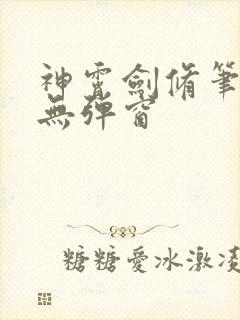 神霄劍脩筆
無彈窗
糖糖愛冰激凌